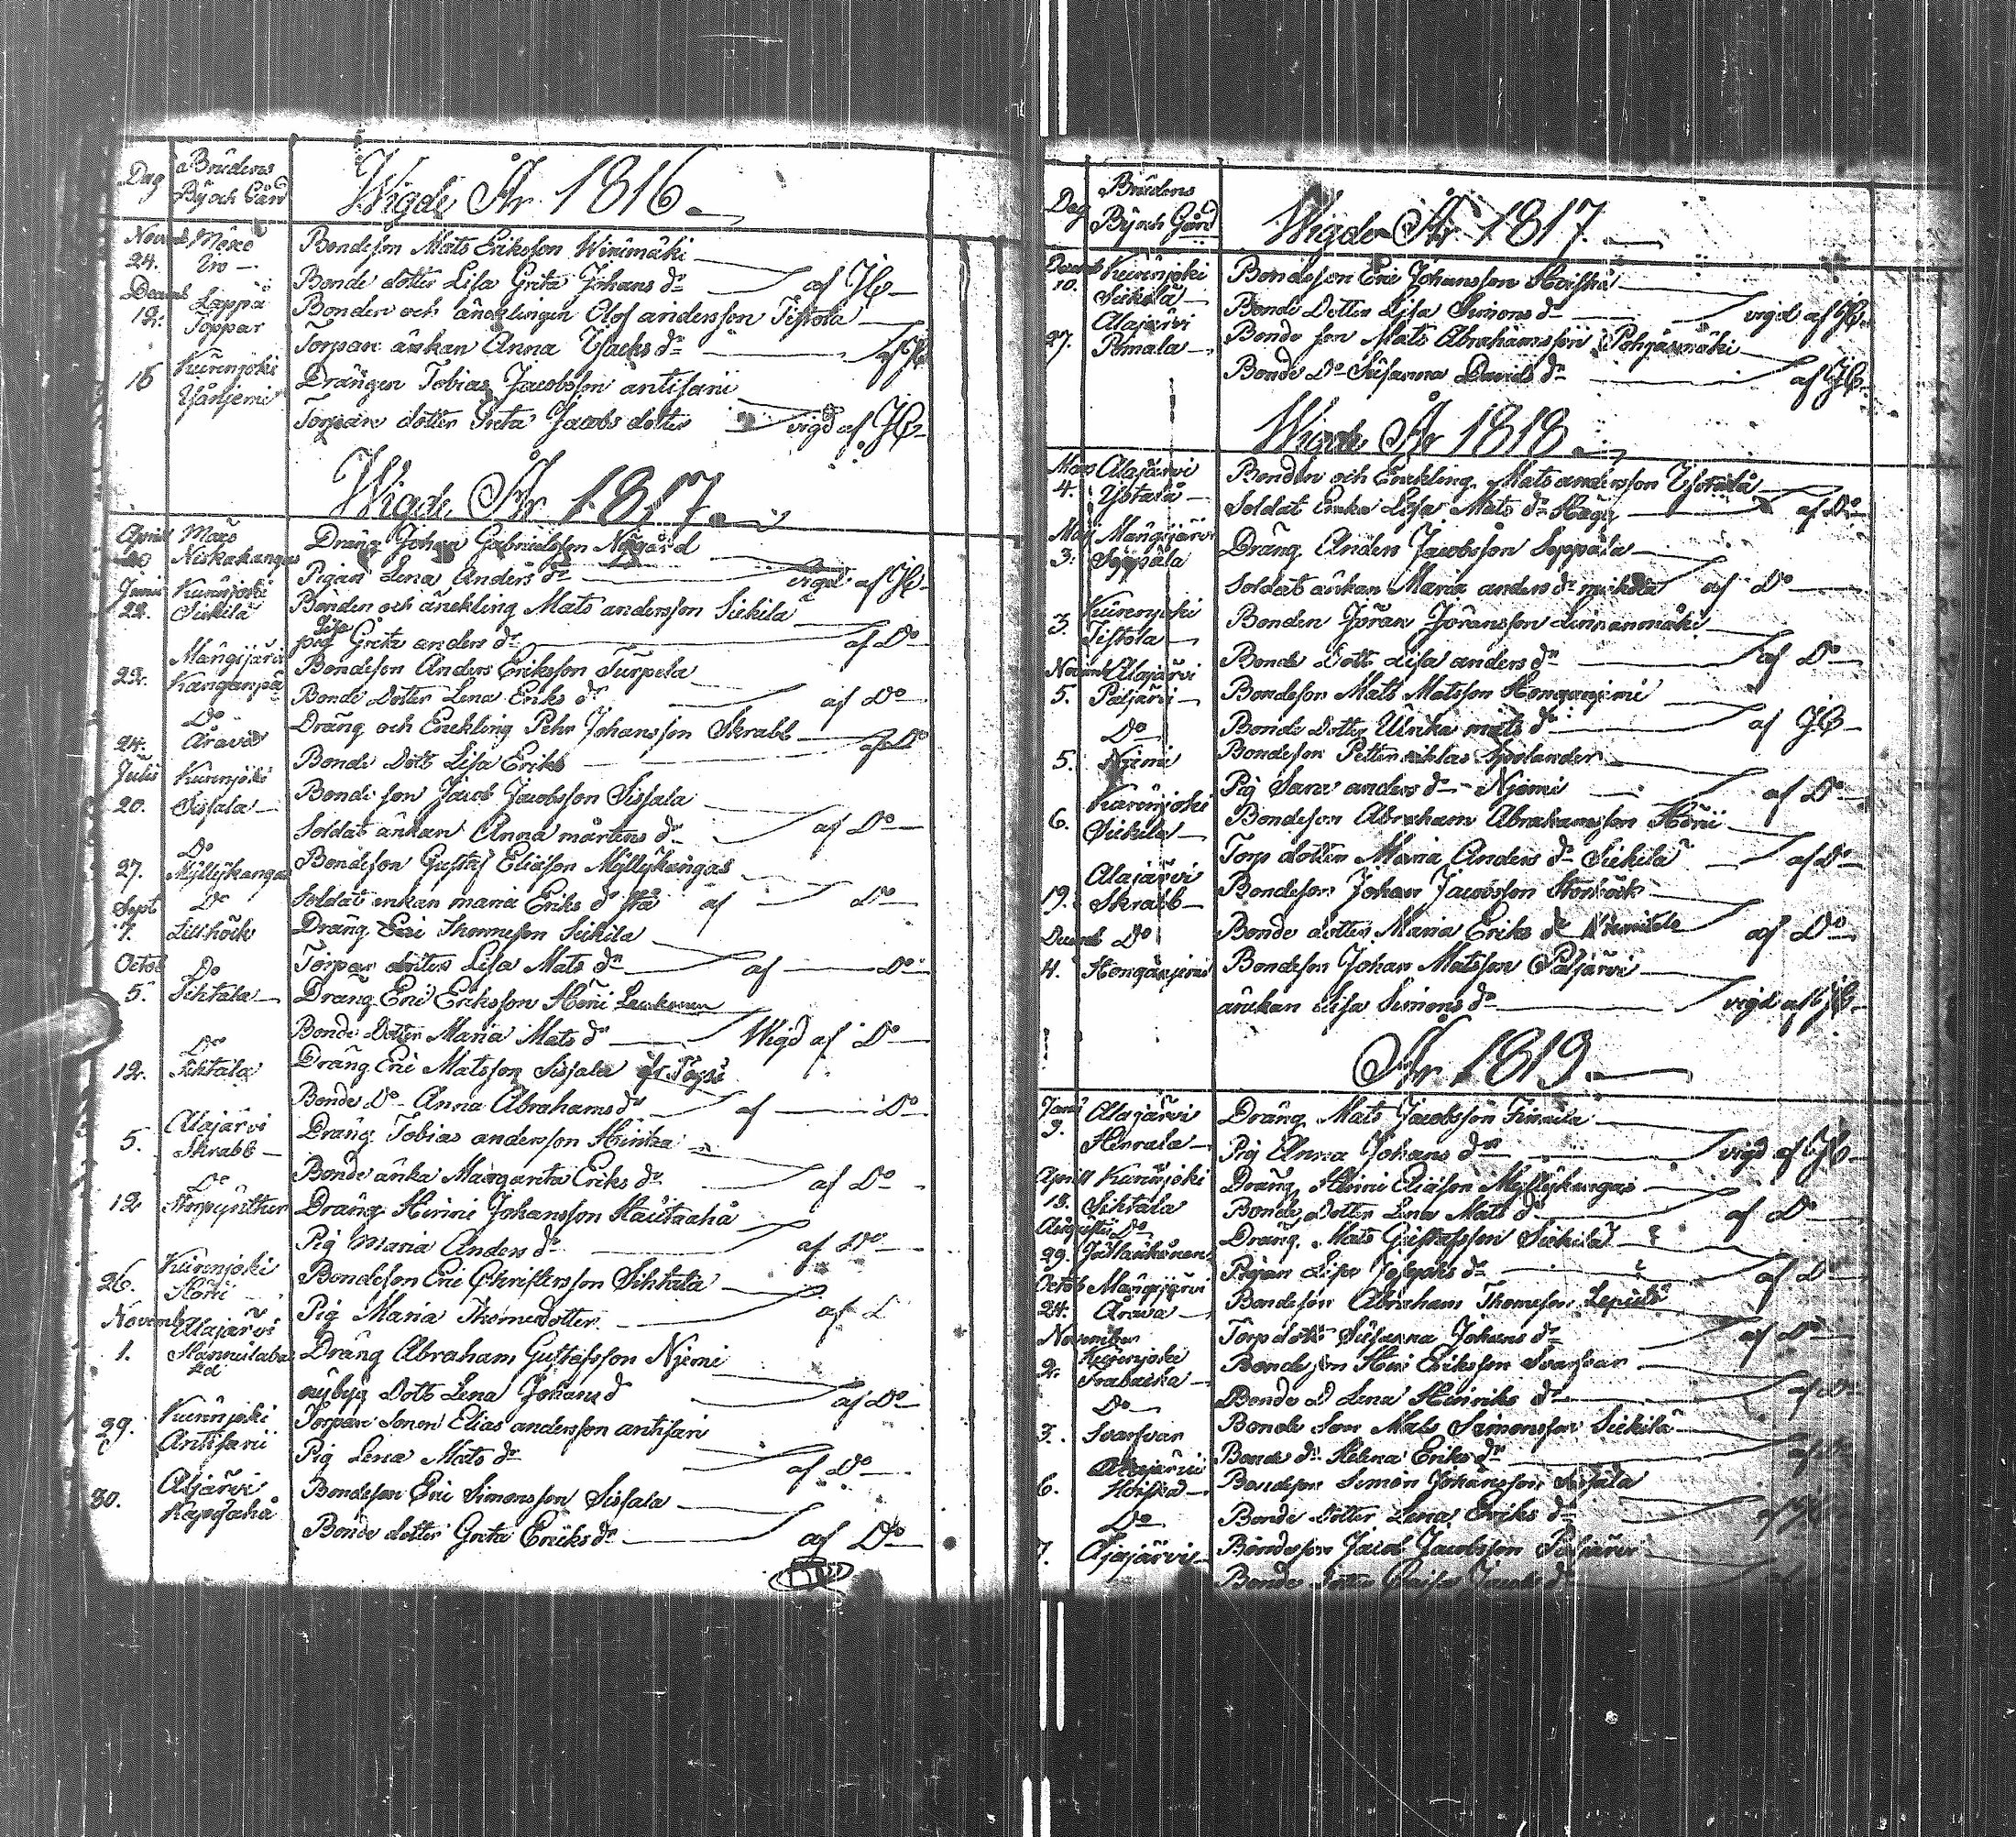 Dag
Brudens
By och Gård
Wigde År 1816.
Novemb Möxö
24.
Bondeson Mats Eriksson Wirimäki
Bonde dotter Lisa Greta Johans dr af JH
Decemb Lappa
12. Toppar
Bonden och äncklingen Olof andersson Tistola
Torpare änkan Anna Isacks dr af JH
15 Kurenjoki
Drängen Tobias Jacobsson antisari
Torpare dotter Greta Jacobs dotter vigd af JH
Wigde År 1817.
April Möxö
Niskakangas
Dräng Johan Gabrielsson Nygård
Pigan Lena Anders dr vigd af JH
Junii Kurenjoki
22. Siekilä
Bonden och änckling Mats andersson Siekila
pig Lisa Greta anders dr af Do
Mängijärvi
22. Kanganpä
Bondeson Anders Eriksson Turpela
Bonde Dotter Lena Eriks dr af Do
Do
24. Årava
Dräng och Enckling Pehr Johansson Skrabb
Bonde Dott Lisa Eriks af Do
Julii Kurenjoki
20. Sissala
Bonde son Jacob Jacobsson Sissala
Soldat änkan Anna mårtens dr af Do
Do
27. Myllykangas
Bondeson Gustaf Eliasson Myllykangas
Soldat enkan maria Eriks dr af Do
Sept Do
7. Lillhöik
Dräng Eric Thomesson Siekila
Torpar dotter Lisa Mats dr af Do
Octob Do
5. Sihtala
Dräng Eric Eriksson Höri
Bonde Dotter Maria Mats dr Wigd af Do
Do
12. Sihtala
Dräng Eric Matsson Sissala
Bonde Do Anna Abrahams dr af Do
Alajärvi
5. Skrabb
Dräng Tobias andersson Hinika
Bonde änka Margareta Eriks dr af Do
Do
12
Dräng Hinric Johansson
Pig Maria Anders dr af Do
Kurenjoki
26. Höri
Bondeson Eric Christersson Sihtala
Pig Maria Thomedotter af D
Novemb Alajärvi
1.
Dräng Abraham Gustafsson Njemi
nybyg Dott Lena Johans d af Do
Kurenjoki
29. Antisarii
Torpare Sonen Elias andersson antisari
Pig Lena Mats dr af Do
Aljärvi
30.
Bondeson Eric Simonsson Sissala
Bonde dotter Greta Eriks dr af Do
Dag
Brudens
By och Gård
Wigde År 1817.
Decemb Kurenjoki
10. Siekilä
Bondesson Eric Johansson Hoiska
Bonde Dotter Lisa Simons dr vigd af JH
Alajärvi
27. Pemala
Bonde son Mats Abrahamsson Pohjasmäki
Bonde Do Susanna Davids dr af JH
Wigde År 1818.
Mars Alajärvi
4.
Bonden och Enckling Mats andersson
Soldat Enka Lisa Mats dr Hägg af Do
Maj Mängijärvi
3. Seppälä
Dräng Anders Jacobsson Seppäla
Soldat änkan Maria anders dr af Do
Kurenjoki
3. Tistola
Bonden Jöran Jöransson Linnanmäki
Bonde Dott Lisa anders dr af Do
Novemb Alajärvi
5. Paljärvi
Bondeson Mats Matsson Honganjemi
Bonde Dotter Ulrika mats dr af JH
Do
5. Njemi
Bondeson Petter niklas
Pig Sara anders dr Njemi af Do
Kurenjoki
6. Siekila
Bondeson Abraham Abrahamsson Hörii
Torp dotter Maria Anders dr Siekila af Do
Alajärvi
19. Skrabb
Bondeson Johan Jacobsson Storhöik
Bonde dotter Maria Eriks dr af Do
Decemb Do
4. Honganjemi
Bondeson Johan Matsson Paljärvi
änkan Lisa Simons dr vigd af JH
År 1819.
Janu Alajärvi
3.
Dräng Mats Jacobsson
Pig Anna Johans dr vigd af JH
April Kurenjoki
18. Sihtala
Dräng Hinric Eliasson Myllykangas
Bonde Dotter Lena Mats dr af Do
Augusti Do
29.
Dräng Mats Gustafsson Siekila
Pigan Lisa Josephs dr af Do
Octob Mängijärvi
24. Årava
Bondeson Abraham Thomeson
Torp dott Susanna Johans dr af Do
November
Kurenjoki
2.
Bondeson Hinric Eriksson Svarfvar
Bonde D Lena Hinriks dr af Do
Do
3. Svarfvar
Bonde Son Mats Simonsson Siekilä
Bonde dr Helena Eriks dr af Do
Alajärvi
6.
Bondeson Simon Johansson Sissala
Bonde Dotter Lena Eriks dr af
Do
7. Alajärvi
Bondeson Jacob Jacobsson Paljärvi
Bonde Dotter